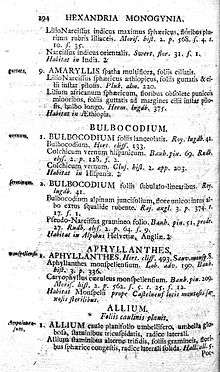 294 HEXANDRIA MONOGYNIA.
LilioNarcissus indicus maximus sphæricus, floribus plu-
rimis rubris liliaceis. Moris. hist. 2. p. 368. s. 4. t.
10. f. 35.
Narcissus indicus orientalis. Swert. flor. 31. f. 1.
Habitat in India. ♃
guttata. 9. AMARYLLIS spatha multiflora, foliis ciliatis.
LilioNarcissus sphæricus æthiopicus, foliis guttatis & cilii
instar pilosis. Pluk. alm. 220.
Lilium africanum sphæricum, floribus obsolete puniceis
minoribus, foliis guttatis ad margines cilii instar pilo-
sis, bulbo longo. Herm. lugdb. 375.
Habitat in Æthiopia.
BULBOCODIUM.
vernum. 1. BULBOCODIUM foliis lanceolatis. Roy. lugdb. 41.
Bulbocodium. Hort. cliff. 133.
Colchicum vernum hispanicum. Bauh. pin. 69. Rudb.
elys. 2. p. 128. f. 2.
Colchicum vernum. Clus. hist. 2. app. 203.
Habitat in Hispania. ♃
serotinum. 2. BULBOCODIUM foliis subulato-linearibus. Roy.
lugdb. 41.
Bulbocodium alpinum juncifolium, flore unico intus al-
bo extus squalide rubente. Raj. angl. 3. p. 374. t.
17. f. 1.
Pseudo-Narcissus gramineo folio. Bauh. pin. 51. prodr.
27. Rudb. elys. 2. p. 64. f. 9.
Habitat in Alpibus Helvetiæ, Angliæ. ♃
APHYLLANTHES.
1. APHYLLANTHES. Hort. cliff. 493.
Aphyllanthes monspeliensium. Lob. adv. 190. Bauh.
hist. 3. p. 336.
Caryophyllus cæruleus monspeliensium. Bauh. pin. 209.
Moris. hist. 2. p. 562. s. 5. t. 25. f. 12.
Habitat Monspelii prope Castelneuf locis montosis sa-
xosis sterilibus.
ALLIUM.
* Foliis caulinis planis.
1. ALLIUM caule planifolio umbellifero, umbella glo-
bosa, staminibus tricuspidatis, radice laterali.
Allium staminibus alternis trifidis, foliis gramineis, flo-
ribus sphærice congestis, radice laterali solida. Hall.